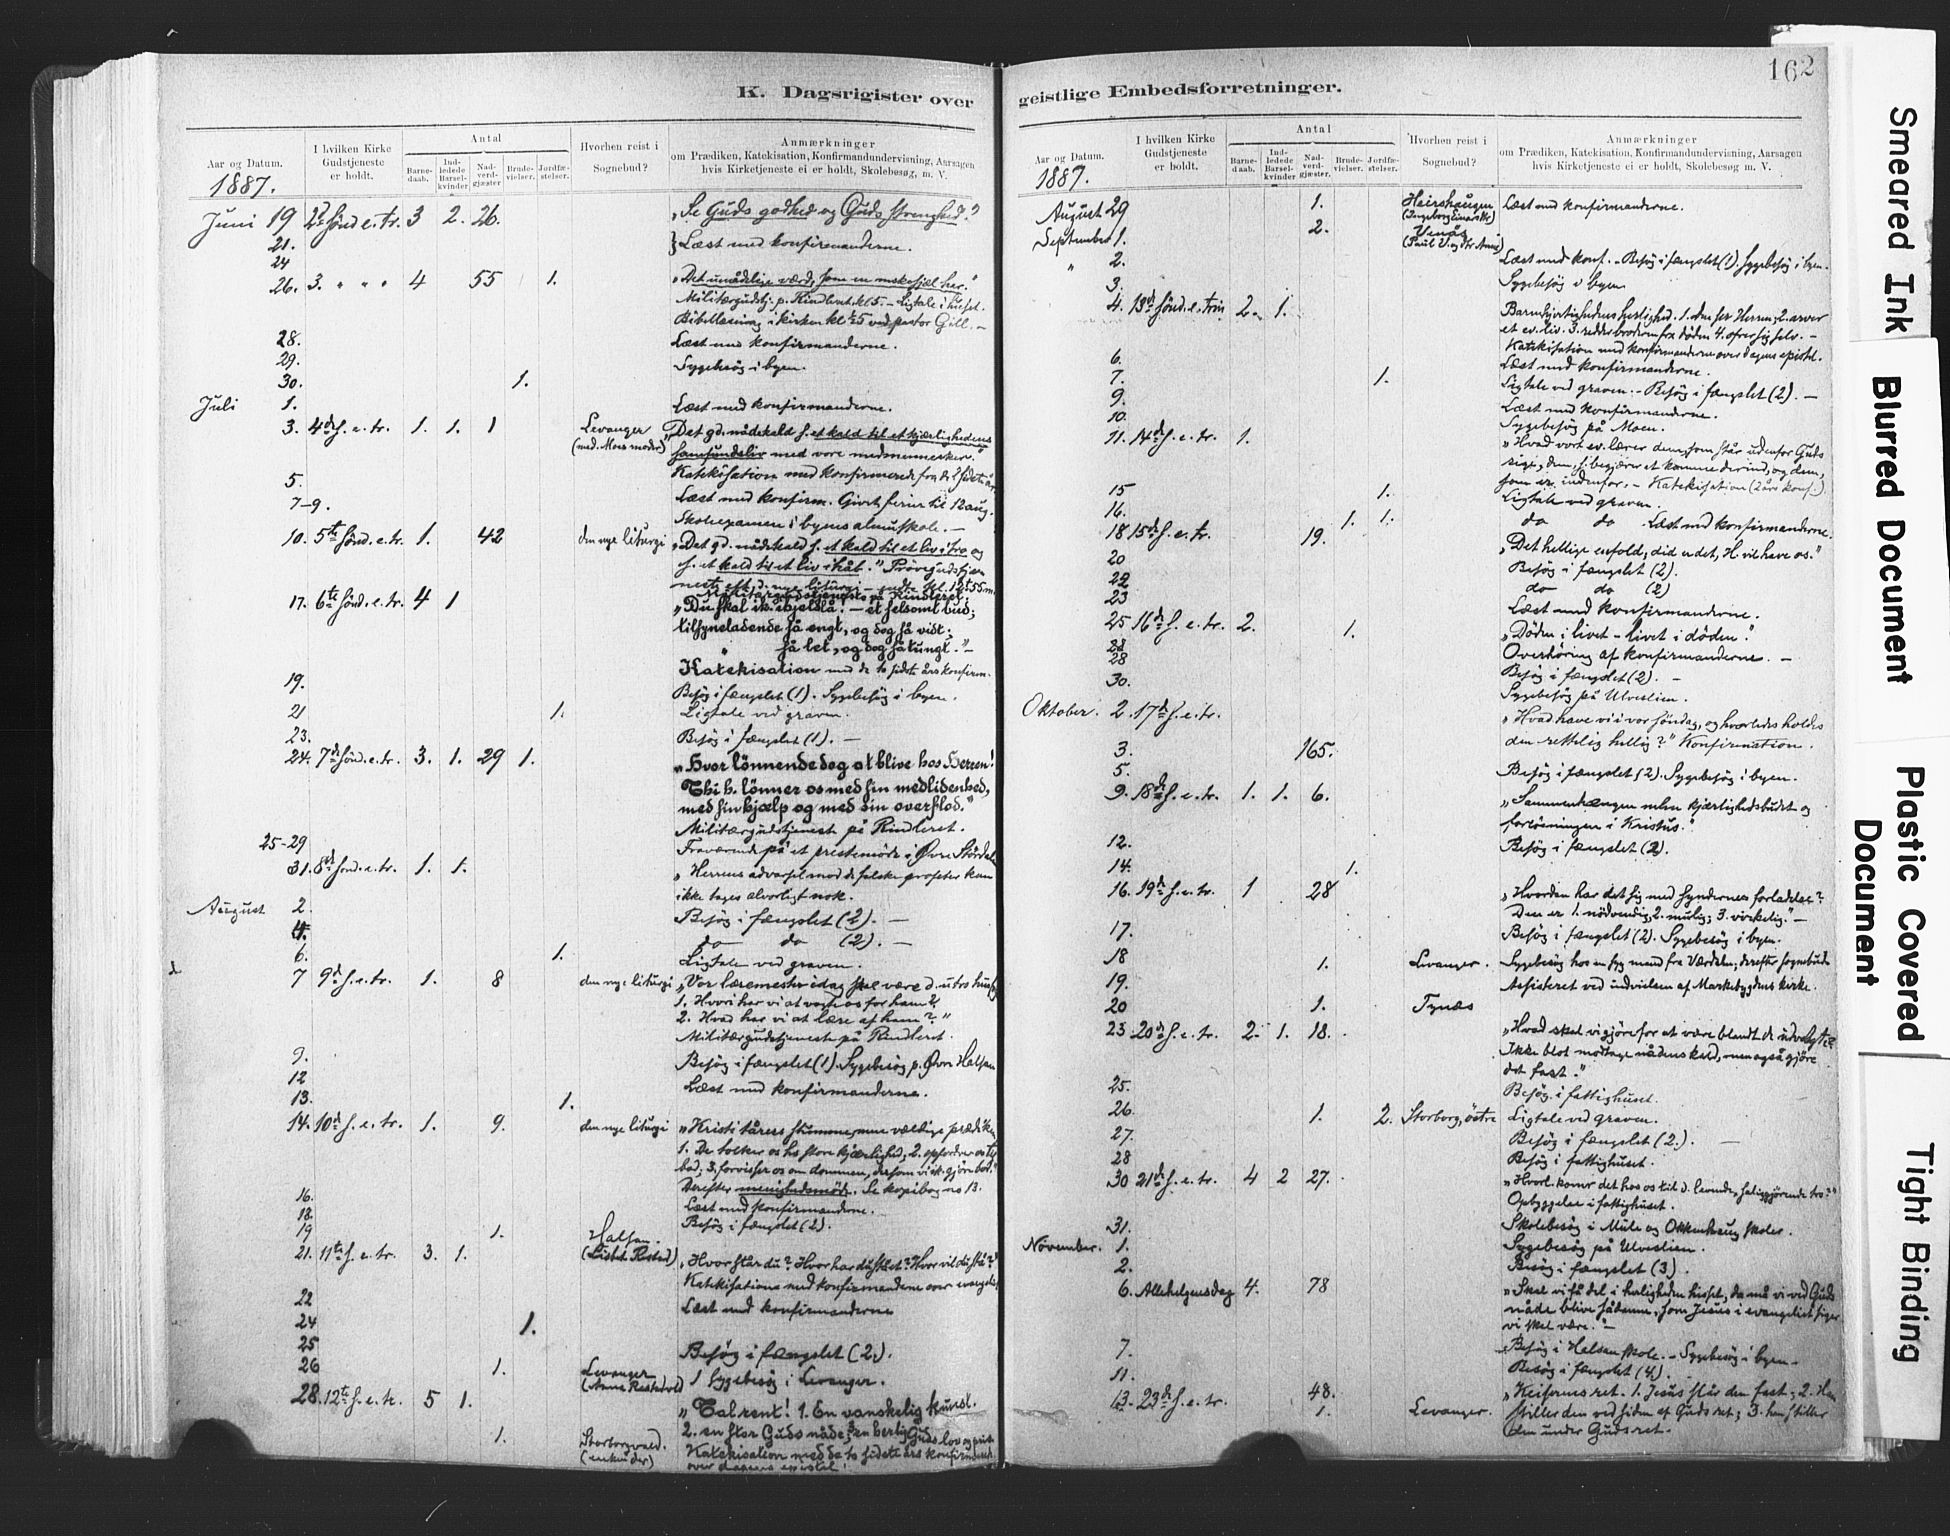 162
K. Dagsrigister over
geistlige Embedsforretninger.
Aar og Datum.
1887.
I hvilken Kirke
Gudstjeneste
er holdt.
Antal
Barne-
daab.
Ind-
ledede
Barsel-
kvinder
Nad-
verd-
gjæster.
Brude-
vielser.
Jordfæ-
stelser.
Hvorhen reist i
Sognebud?
Anmærkninger
om Prædiken, Katekisation, Konfirmandundervisning, Aarsagen
hvis Kirketjeneste ei er holdt, Skolebesøg, m. V.
Juni 19 2d sønd. e. tr. 3 2. 26. „Se Guds godhed og Guds strenghed."
21. Læst med konfirmanderne.
24
26. 3. " " " 4 55 1. „Det umådelige værd, som en mskesjæl har."
Militærgudstj. p. Rindleret kl 5. – Ligtale i huset.
Bibellæsning i kirken kl ved pastor Gill. –
28. Læst med konfirmanderne.
29. Sygebesøg i byen.
30. 1.
Juli 1. Læst med konfirmanderne.
3. 4de s. e. tr. 1. 1. 1 Levanger „Det gd. nådekald s. et kald til et kjærlighedens
samfundsliv med vore medmennesker."
5. Læst med konfirm. Givet ferier til 12 aug.
7–9. Skoleexamen i byens almuskole. –
10. 5te sønd. e. tr. 1. 42 den nye liturgi „Det gd. nådekald s. et kald til et liv i tro og
s. et kald til et liv i håb."
17. 6te sønd. e. tr. 4 1 „Du skal ik. ihjelslå! – et selsomt bud;
tilsyneladende så engt, og dog så vidt;
så let, og dog så tungt." –
Katekisation med de to sidste års konfirm.
19. Besøg i fængslet (1). Sygebesøg i byen.
21 1. Ligtale ved graven.
23. Besøg i fængslet (1). –
24. 7de sønd. e. tr. 3. 1. 29 1. „Hvor lønnende dog at blive hos Herren!
Thi h. lønner os med sin medlidenhed,
med sin hjælp og med sin overflod."
Militærgudstjeneste på Rindleret.
25–29 Fraværende på et prestemøde i Øvre Stördal
31. 8de sønd. e. tr. 1. 1. „Herrens advarsel mod de falske profeter kan
ikke tages alvorligt nok.
August 2. Besøg i fængslet (2). –
4. do do (2). –
6. 1. Ligtale ved graven.
7 9d s. e. tr. 1. 8 den nye liturgi „Vor læremester idag skal være d. utro hush.
1. Hvori har vi at vogte os for ham?
2. Hvad har vi at lære af ham?"
Militærgudstjeneste på Rindleret.
9. Besøg i fængslet (1). Sygebesøg p. Øvre Halsan
12 Læst med konfirmanderne.
13. 1.
14. 10d s. e. tr. 1. 9. den nye liturgi „Kristi tårers stumme, men vældige prædiken
1. De tolker os hs store kjærlighed; 2. opfordrer os til
bod; 3. forvisser os om dommen, dersom vi ik. gjøre bod."
Derefter menighedsmøde. Se kopibog no 13.
16. Læst med konfirmanderne.
18. Besøg i fængslet (2).
19 1. Halsan.
21. 11te s. e. tr. 3. 1. „Hvor står du? Hvor har du stået? Hvor vil du stå?"
Katekisation med konfirmandene over evangeliet
22 Læst med konfirmanderne
24 1.
25 Besøg i fængslet (2.).
26 1. Levanger 1 Sygebesøg i Levanger.
28. 12te s. e. tr. 5 1. „Tal rent! 1. En vanskelig kunst.
1. Storborgvald.
Katekisation med de to sidste års konfirmander
over dagens epistel.
Aar og Datum.
1887.
I hvilken Kirke
Gudstjeneste
er holdt.
Antal
Barne-
daab.
Ind-
ledede
Barsel-
kvinder
Nad-
verd-
gjæster.
Brude-
vielser.
Jordfæ-
stelser.
Hvorhen reist i
Sognebud?
Anmærkninger
om Prædiken, Katekisation, Konfirmandundervisning, Aarsagen
hvis Kirketjeneste ei er holdt, Skolebesøg m. V.
August 29 1. Heirshaugen Læst med konfirmanderne.
September 1. 2. Venås
" 2. Læst med konf. – Besøg i fængslet (1). Sygebesøg i byen.
3. Sygebesøg i byen
4. 13de sønd. e. trin 2. 1. Barmhjertighedens herlighed. 1. den ser Herren; 2. arver
et ev. liv. 3. redder broderen fra døden 4. ofrer sig selv. –
Katekisation med konfirmanderne over dagens epistel.
6. Læst med konfirmanderne.
7. 1. Ligtale ved graven. – Besøg i fængslet (2). –
9. Læst med konfirmanderne.
10. Sygebesøg på Moen.
11. 14de s. e. tr. 1. „Hvad vort ev. lærer dem, som står udenfor Guds
rige, dem, s. begjærer at komme derind, og dem,
som er indenfor. – Katekisation (2 års konf.).
15 1. Ligtale ved graven.
16. 1. 1. do do Læst med konfirmanderne.
18 15de s. e. tr. 19. „Det hellige enfold; did er det, H. vil have os."
20 Besøg i fængslet (2).
22 do do (2)
23 Læst med konfirmanderne.
25 16de s. e. tr. 2. 1. „Døden i livet – livet i døden."
Overhøring af konfirmanderne. –
28 Besøg i fængslet (2). –
30. Sygebesøg på Ulveslien.
Oktober. 2. 17de s. e. tr. „Hvad have vi i vor søndag, og hvorledes holdes
den rettelig hellig?" Konfirmation.
3. 165.
5. Besøg i fængslet (2). Sygebesøg i byen.
9. 18de s. e. tr. 1. 1. 6. „Sammenhængen mlm kjærlighedsbudet og
forløsningen i Kristus."
12. Besøg i fængslet (2).
14. 1.
16. 19de s. e. tr. 1 28 „Hvordan har det sig med syndernes forladelse?
Den er 1. nødvendig; 2. mulig; 3. virkelig." –
17. Besøg i fængslet (2). Sygebesøg i byen.
18 1. Levanger. Sygebesøg hos en syg mand fra Værdalen; derefter sognebud.
19. Assisteret ved indvielsen af Markebygdens kirke.
20 1. Tynæs
23 20de s. e. tr. 2. 1. 18. „Hvad skal vi gjøre for at være blandt de udvalgte?
Ikke blot modtage nådens kald, men også gjøre
det fast."
25. Besøg i fattighuset.
26. 1. 2. Storborg, östre Ligtale ved graven.
27. Besøg i fængslet (2.). –
28 Besøg i fattighuset.
30 21de s. e. tr. 4 2 27. „Hvorl. komr det hos os til d. levende, saliggjørende tro?"
Opbyggelse i fattighuset.
31. Skolebesøg i Mule og Okkenhaug skoler.
November. 1. Sygebesøg på Ulveslien.
2. Besøg i fængslet (3).
6. Allehelgensdag 4. 78 „Skal vi få del i herligheden hisset, da må vi ved Guds
nåde blive sådanne, som Jesus i evangeliet siger
vi skal være." –
7. Besøg i Halsan skole. – Sygebesøg i byen –
11. Besøg i fængslet (4).
13. 23de s. e. tr. 48. „Keiserens ret. 1. Jesus slår den fast; 2. Han
1. Levanger. stiller den ved siden af Guds ret; 3. han stiller
den under Guds ret.
Smeared Ink
Blurred Document
Plastic Covered
Document
Tight Binding